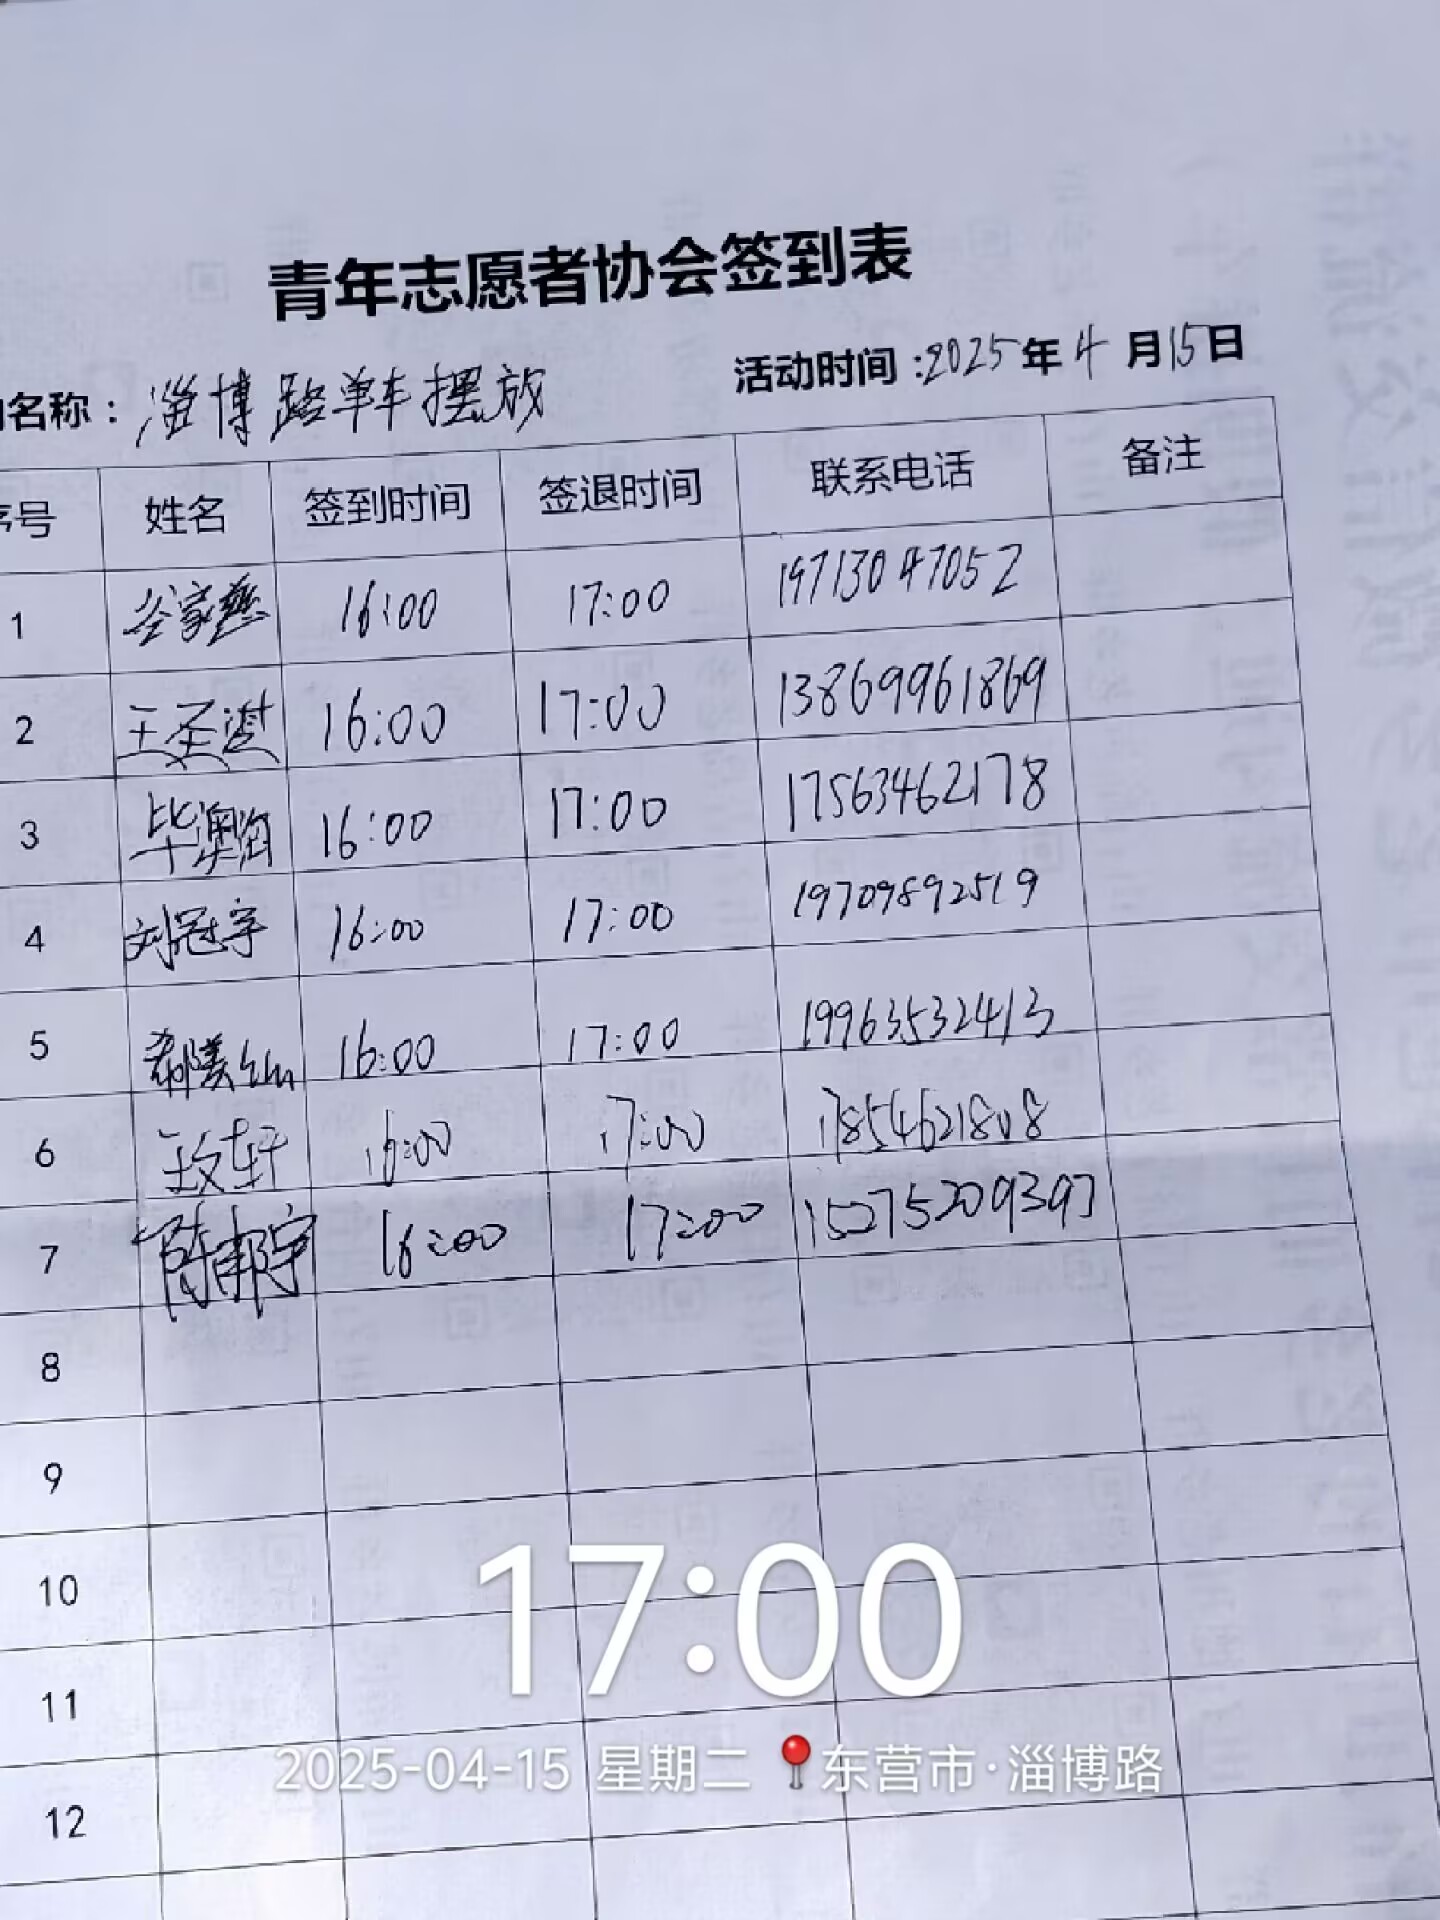 青年志愿者协会签到表
名称：淄博路单车摆放 活动时间：2025年4月15日
序号 姓名 签到时间 签退时间 联系电话 备注
1 家慈 16:00 17:00 19713047052
2 王圣 16:00 17:00 13869961869
3 毕澳 16:00 17:00 17563462178
4 刘冠宇 16:00 17:00 19709892519
5 16:00 17:00 19963532413
6 王文轩 16:00 17:00 17854621808
7 陈邦宇 16:00 17:00 15275209397
8
9
10
11
12
17:00
2025-04-15 星期二 东营市·淄博路